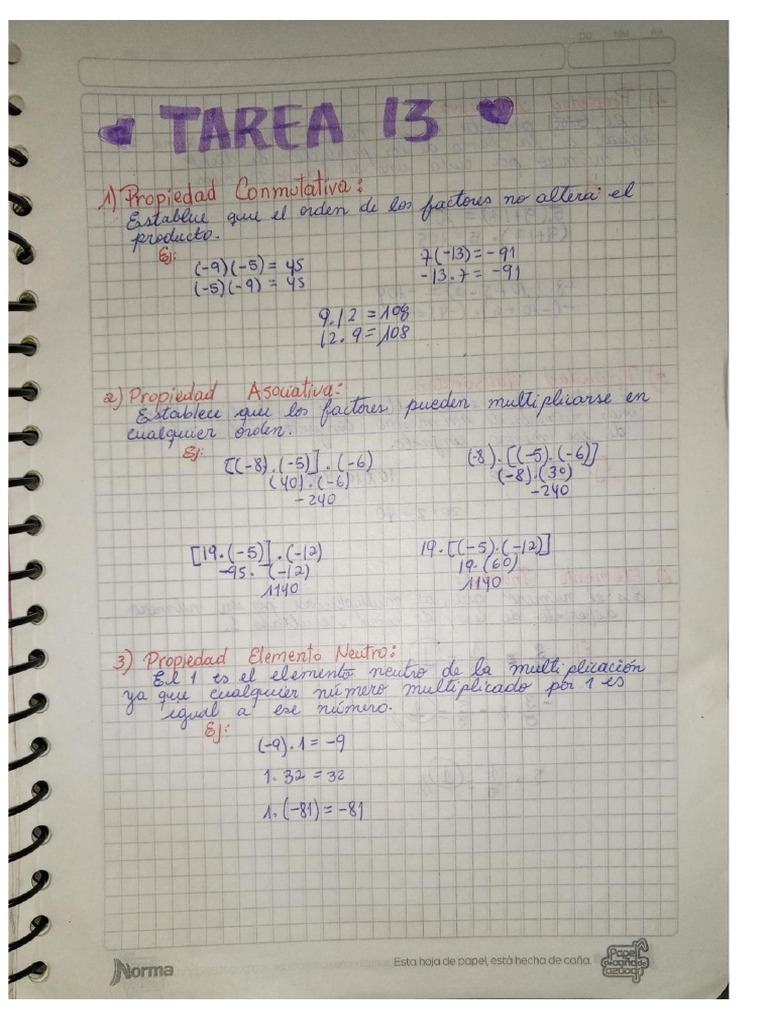 TAREA 13
1) Propiedad Conmutativa:
Establece que el orden de los factores no altera el
producto.
Ej:
(-9)(-5) = 45
(-5)(-9) = 45
7(-13) = -91
-13.7 = -91
9.12 = 108
12.9 = 108
2) Propiedad Asociativa:
Establece que los factores pueden multiplicarse en
cualquier orden.
Ej:
[(-8).(-5)].(-6)
(40).(-6)
-240
(-8).[(-5).(-6)]
(-8).(30)
-240
[19.(-5)].(-12)
-95.(-12)
1140
19.[(-5).(-12)]
19.(60)
1140
3) Propiedad Elemento Neutro:
El 1 es el elemento neutro de la multiplicación
ya que cualquier número multiplicado por 1 es
igual a ese número.
Ej:
(-9).1 = -9
1.32 = 32
1.(-81) = -81
Norma
Esta hoja de papel, está hecha de caña.
Papel
de caña de
azúcar